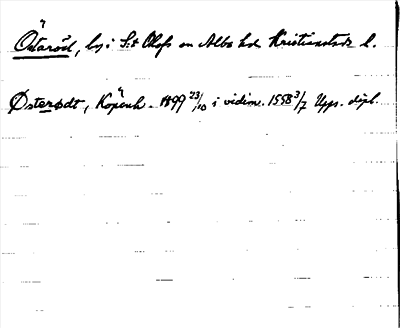 Östaröd, by i S:t Olofs sn Albo hd Kristianstads l.
Østerødt, Köpenh. 1499 23/10 i vidim. 1558 3/7 Upps. dipl.